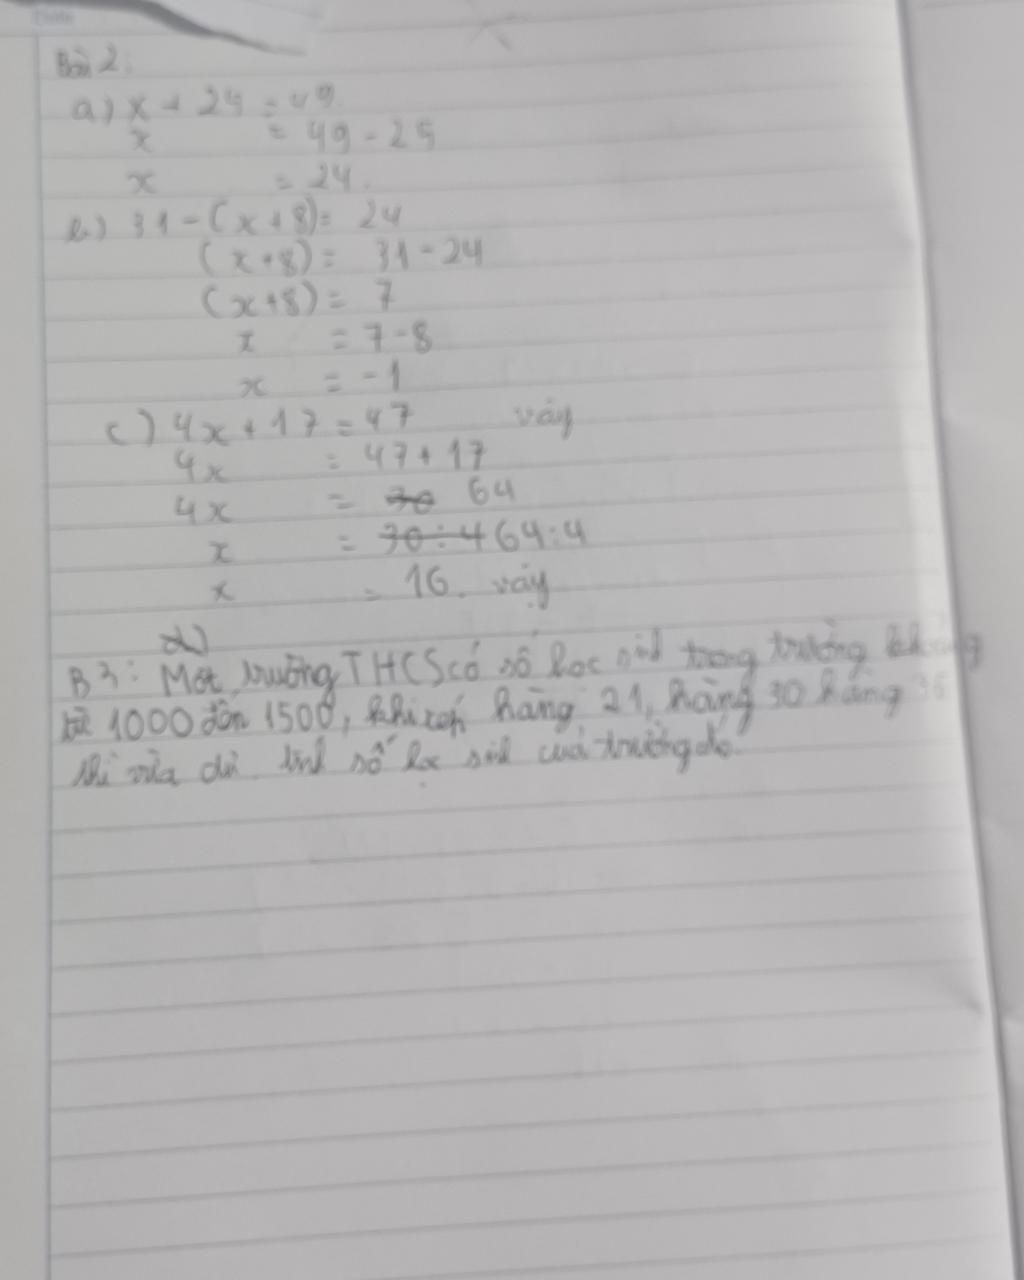 Bài 2:
a) x + 24 = 49
x = 49 - 25
x = 24.
b) 31 - (x + 8) = 24
(x + 8) = 31 - 24
(x + 8) = 7
x = 7 - 8
x = -1
c) 4x + 17 = 47 vậy
4x = 47 + 17
4x = 30 64
x = 30 : 4 64 : 4
x = 16. vậy
d)
B3: Một trường THCS có số học sinh trong trường khoảng
từ 1000 đến 1500, khi xếp hàng 21, hàng 30 hàng
thì vừa đủ. tính số học sinh của trường đó.